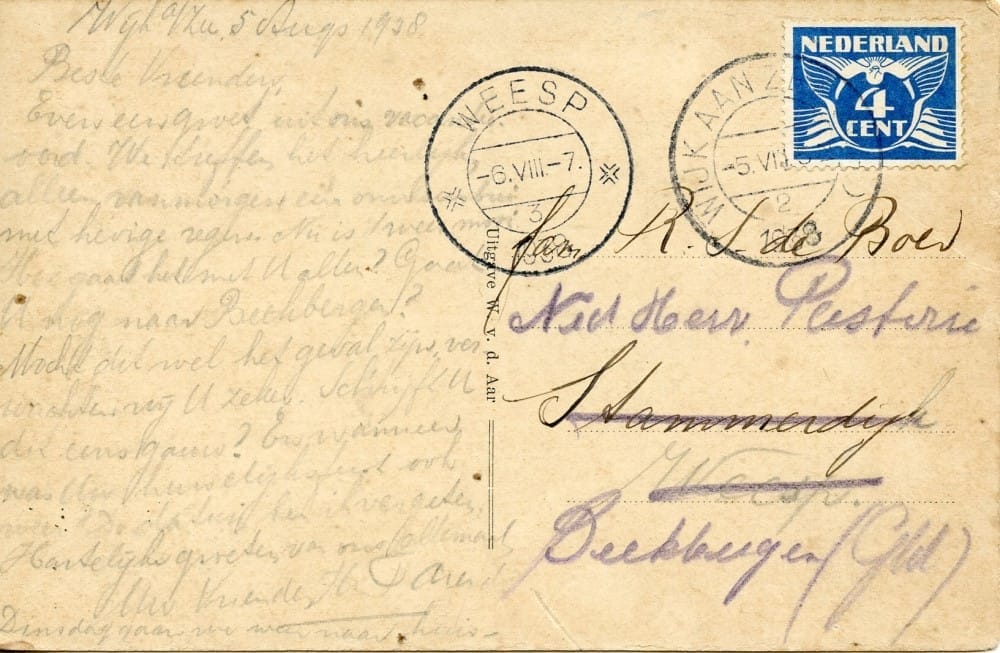 Wijk a/Zee, 5 Augs 1938.
Beste Vrienden,
Even een groet uit ons
oord. We treffen het heerlijk,
alleen vanmorgen een
met hevige regen. Nu is 't weer mooi
Hoe gaat het met U allen? Gaat
U nog naar Beekbergen?
Mocht dit wel het geval zijn, ver-
wachten wij U zeker. Schrijft U
dit eens gauw? En wanneer
was Uw huwelijksfeest ook
weer?
Hartelijke groeten van ons allemaal
Uw Vrienden
Dinsdag gaan we weer naar huis-
WEESP
-6.VIII.-7.
3
1938
WIJK AAN ZEE
-5.VIII.
2
1938
NEDERLAND
4
CENT
Uitgave W. v. d. Aar
Fam R. J. de Boer
Ned Herv. Pastorie
Stammerdijk
Weesp.
Beekbergen (Gld)